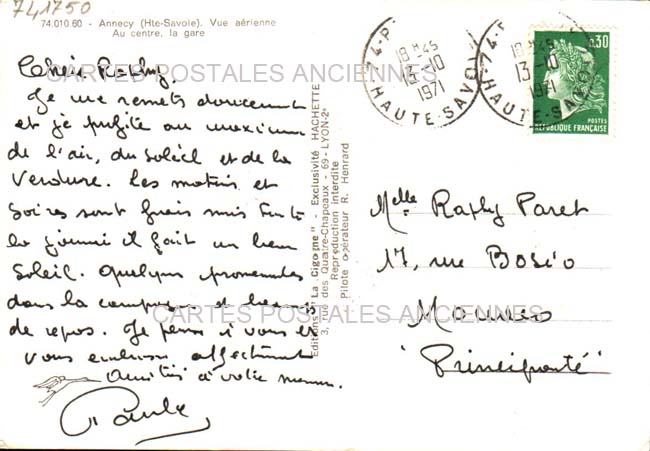 741750
74.010.60 - Annecy (Hte-Savoie). Vue aérienne
Au centre, la gare
Chère Raphy,
Je me remets doucement
et je profite au maximum
de l'air, du soleil et de la
verdure. Les matins et
soires sont frais mais toute
la journée il fait un beau
soleil. Quelques promenades
dans la campagne et
de repos. Je pense à vous et
vous embrasse affectueusement
Amitiés à votre maman.
Paule
Editions "La Cigogne" - Exclusivité HACHETTE
3, rue des Quatre-Chapeaux - 69 - LYON-2e
Reproduction interdite
Pilote opérateur R. Henrard
74-
18H45
13-10
1971
HAUTE-SAVOIE
74-
18H45
13-10
1971
HAUTE-SAVOIE
0,30
POSTES
REPUBLIQUE FRANÇAISE
Melle Raphy Paret
17, rue Bosio
Monaco
"Principauté"
CARTES POSTALES ANCIENNES
CARTES POSTALES ANCIENNES